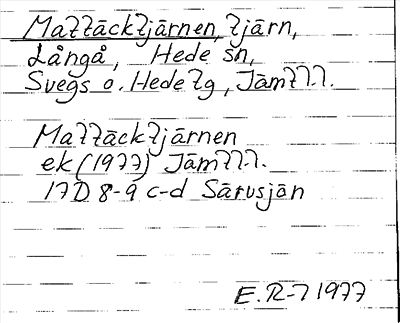 Mattäcktjärnen, tjärn,
Långå, Hede sn,
Svegs o. Hede tg, Jämtl.l.
Mattäcktjärnen
ek (1977) Jämtl.l.
17D 8-9 c-d Särusjön
E.R-7 1977